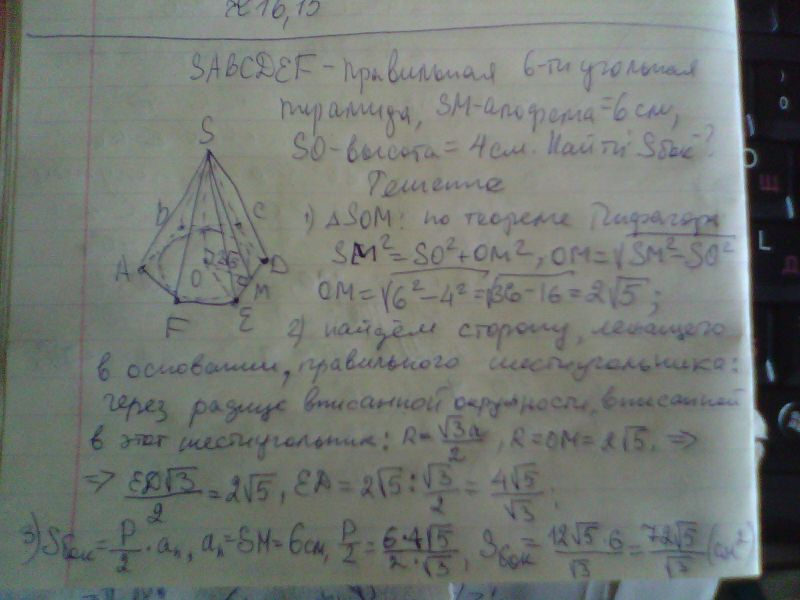 № 16,15
SABCDEF - правильная 6-ти угольная
пирамида, SM-апофема=6см,
SO-высота=4см. Найти Sбок-?
Решение
1) △SOM: по теореме Пифагора
SM²=SO²+OM², OM=√SM²-SO²
OM=√6²-4²=√36-16=2√5;
2) найдём сторону, лежащего
в основании, правильного шестиугольника:
через радиус вписанной окружности, вписанной
в этот шестиугольник: R=√3a/2, R=OM=2√5. =>
=> ED√3/2=2√5, ED=2√5:√3/2=4√5/√3;
3) Sбок=P/2·aₙ, aₙ=SM=6см, P/2=6·4√5/2·√3, Sбок=12√5·6/√3=72√5/√3(см²)
S
B
C
A
D
O
2√5
M
F
E